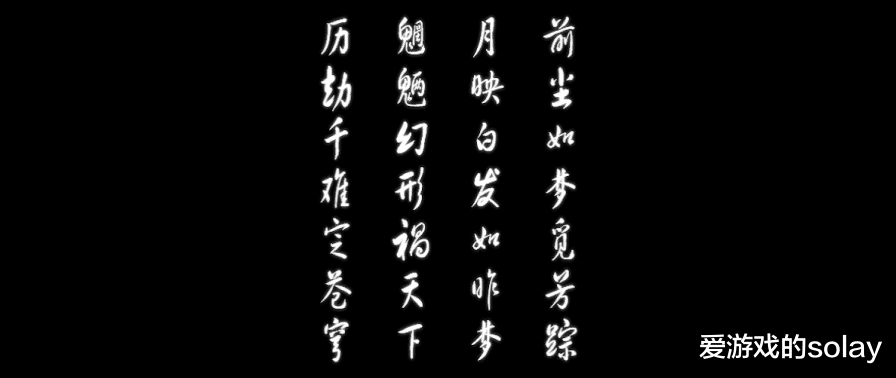 前尘如梦觅芳踪
月映白发如昨梦
魍魉幻形祸天下
历劫千难定苍穹
爱游戏的solay